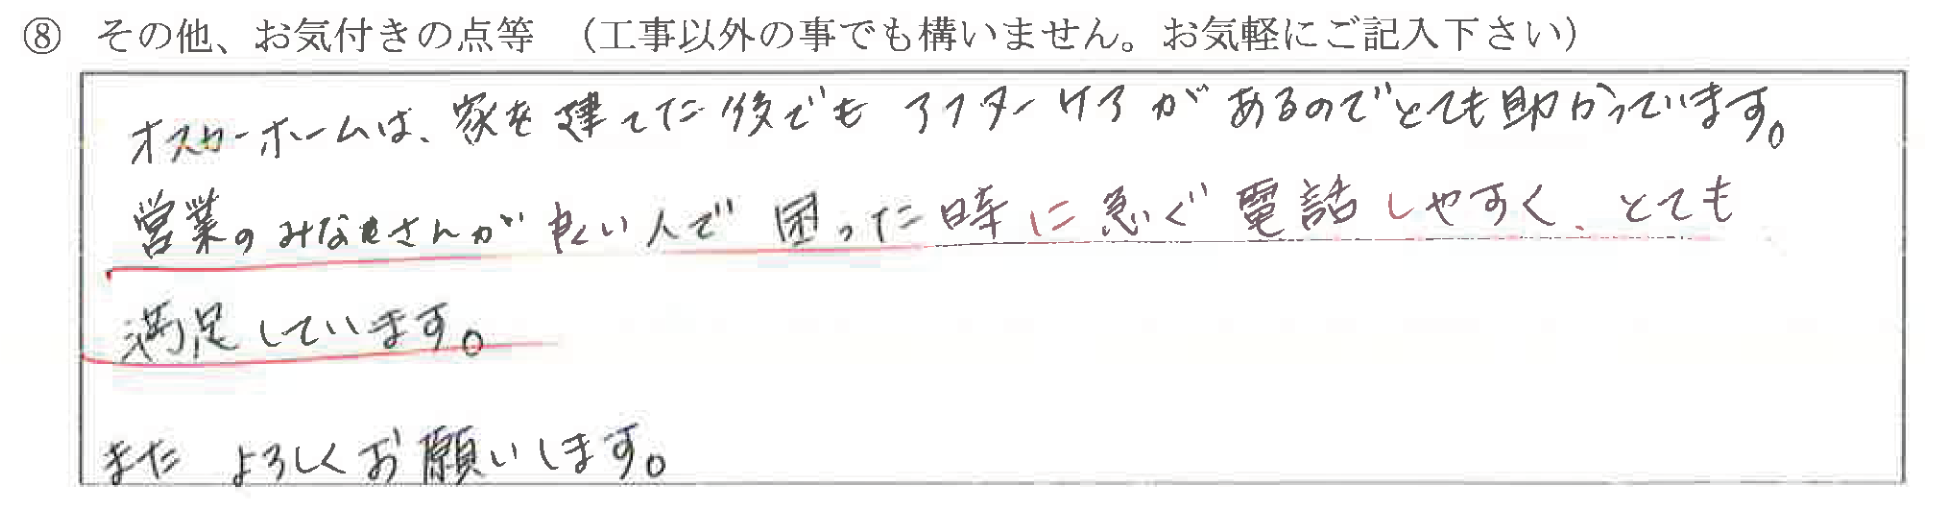 ⑧ その他、お気付きの点等 (工事以外の事でも構いません。お気軽にご記入下さい)
オスカーホームは、家を建てた後でもアフターケアがあるのでとても助かっています。
営業のみなさんが良い人で困った時に急ぐ電話しやすく、とても
満足しています。
また よろしくお願いします。